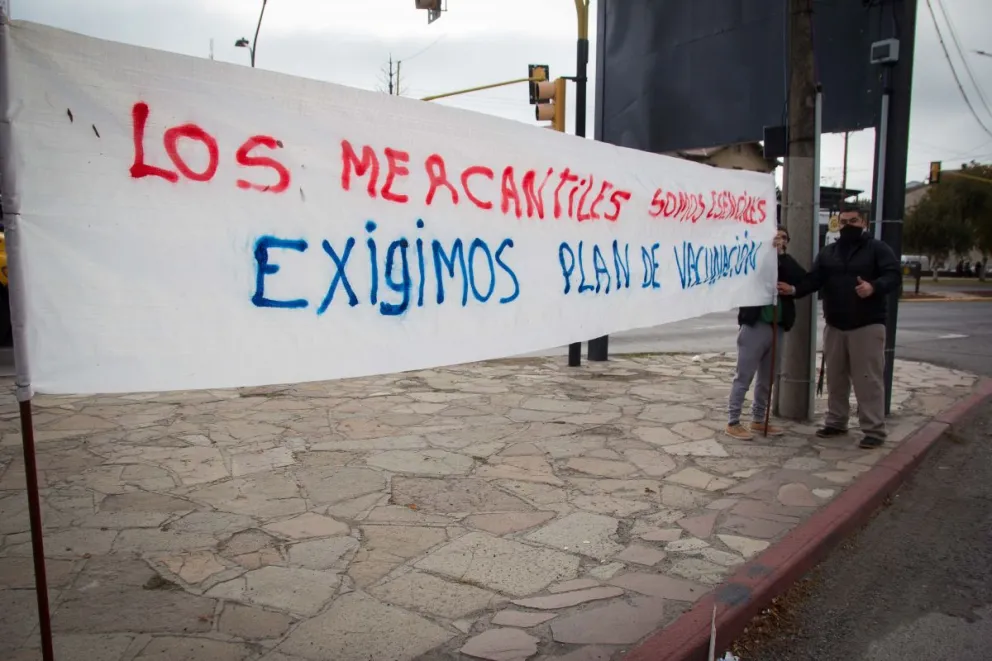 LOS MERCANTILES SOMOS ESENCIALES
EXIGIMOS PLAN DE VACUNACIÓN